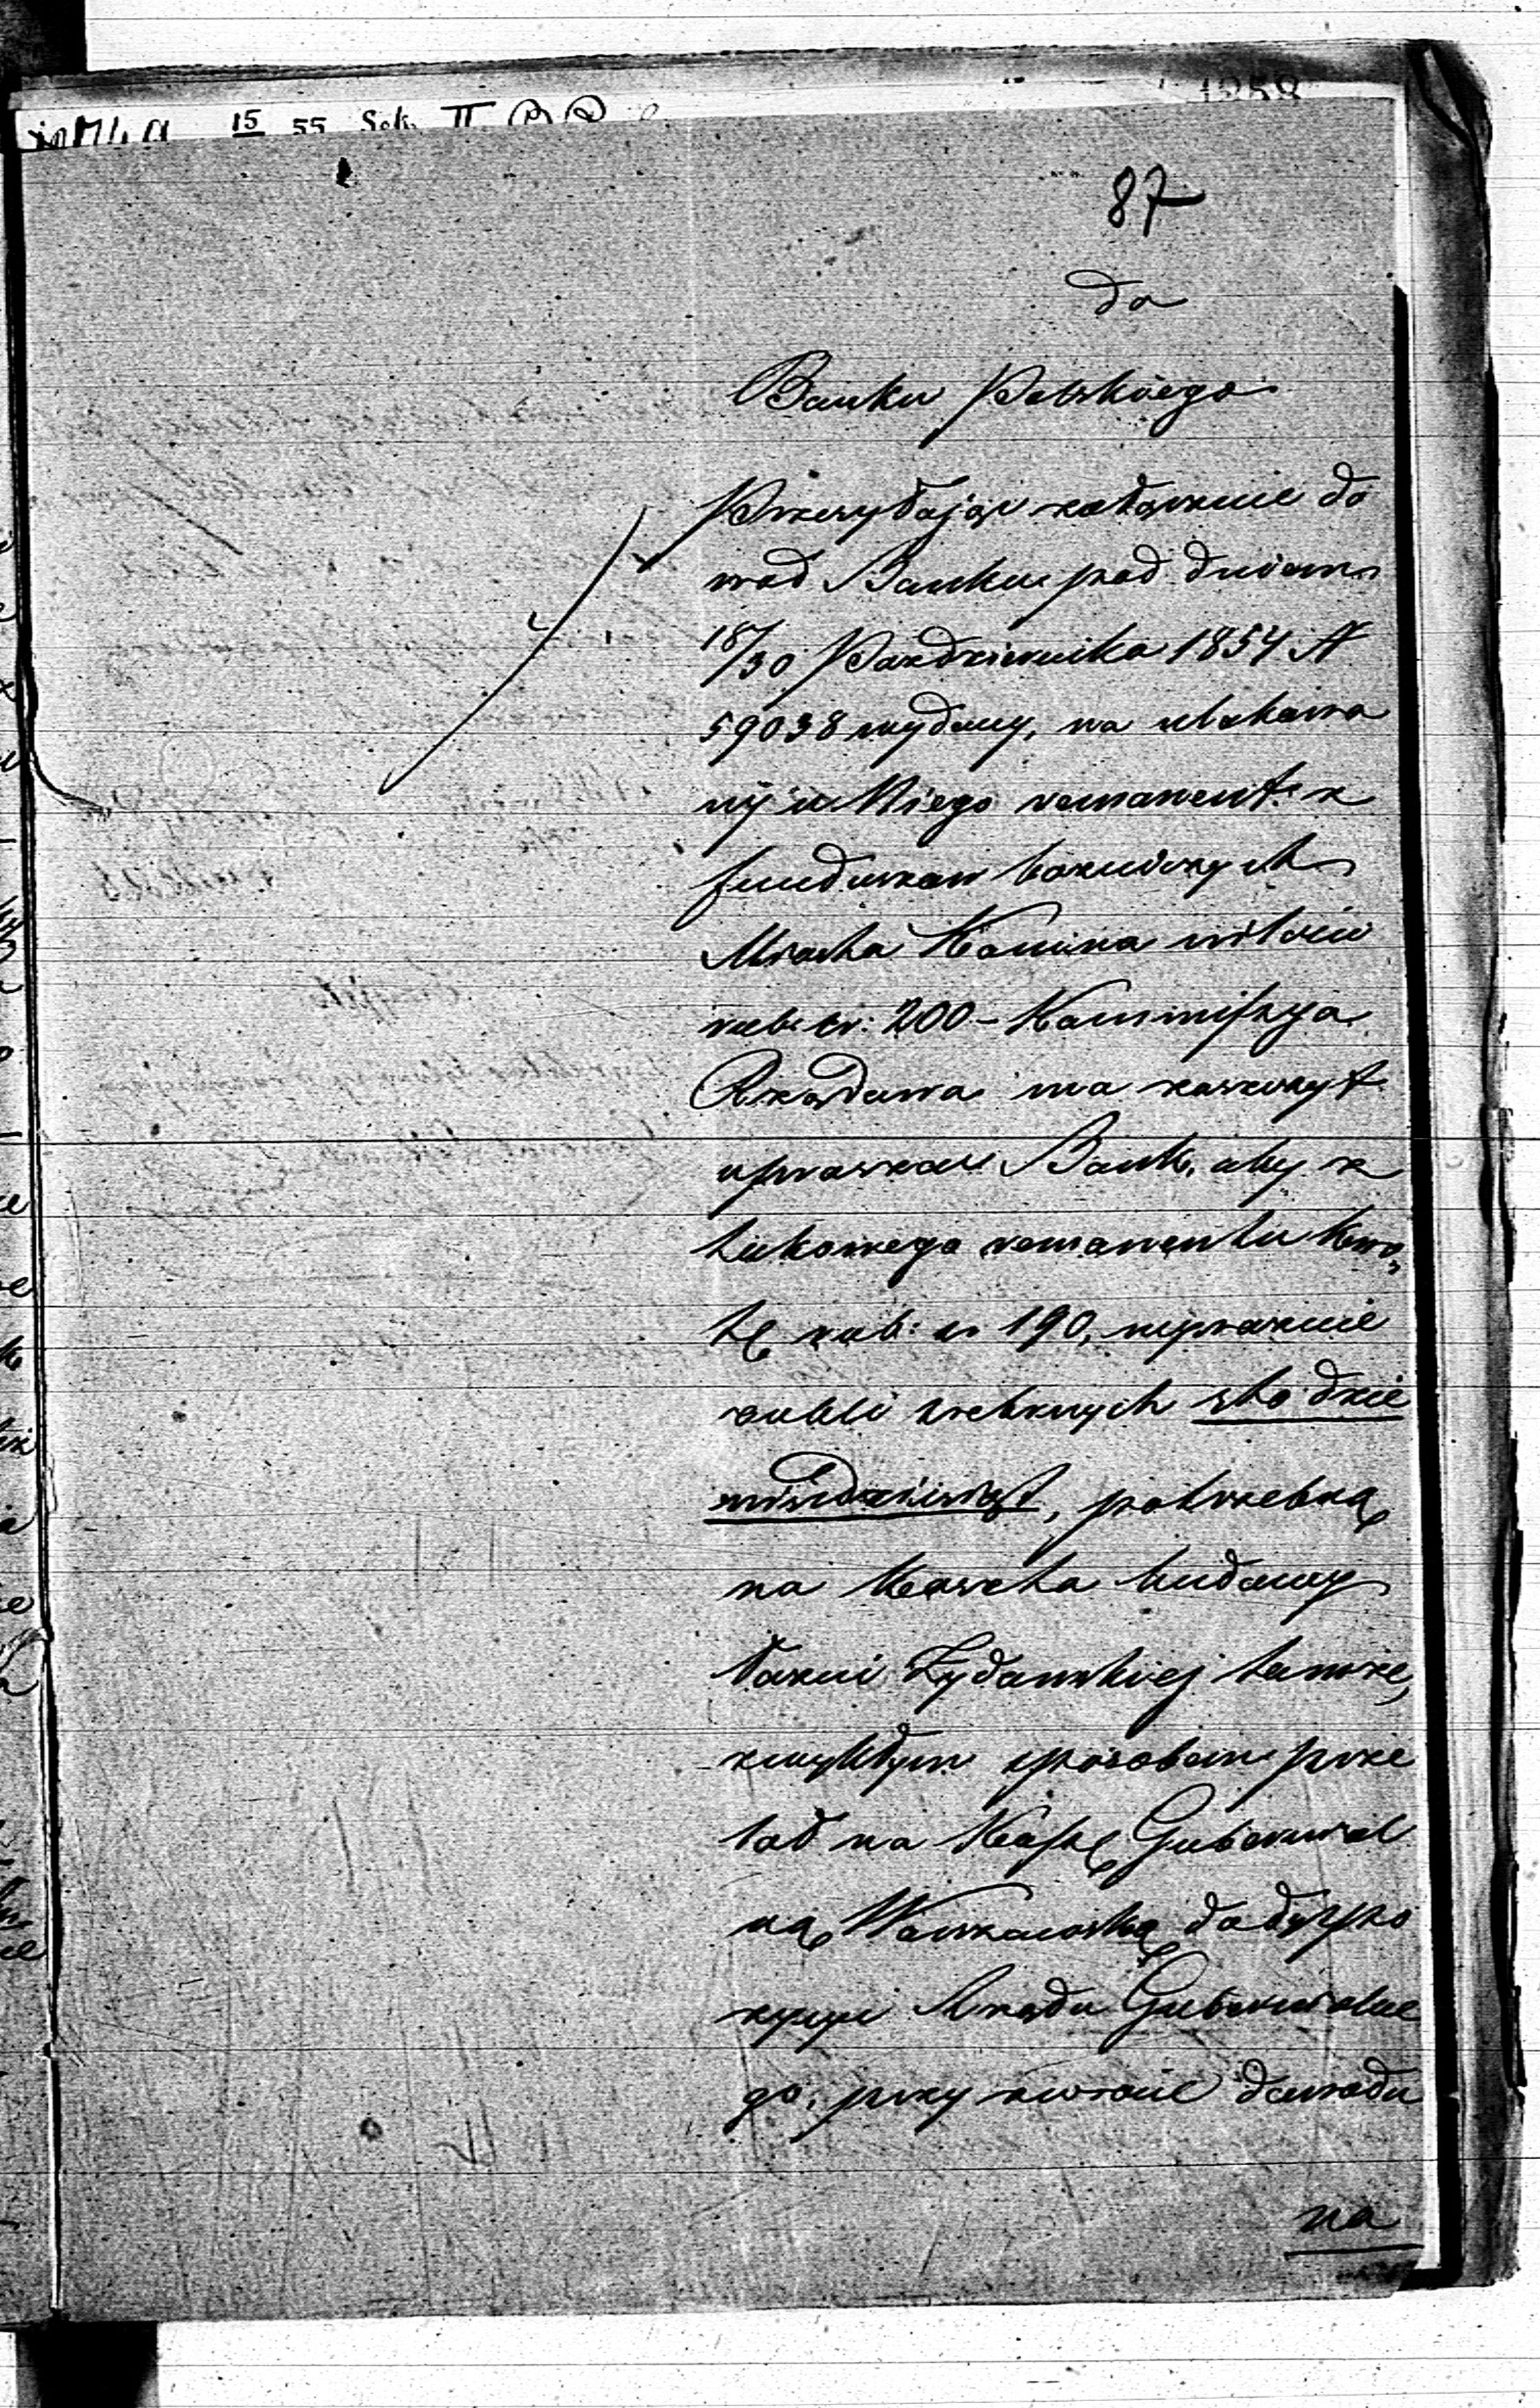 15/55 Sek. II
87
do
Banku Polskiego
Przesyłając załącznie do
wod Banku pod dniem
18/30 Października 1854 N
59038 wydany, na ulokowa
ny u Niego remanent z
funduszów bożniczych
Miasta Konina w ilości
rub. sr: 200 – Kommissya
Rządowa ma zaszczyt
upraszać Bank, aby z
takowego remanentu kwo,
tę rub: sr 190, wyraźnie
rubli srebrnych sto dzie
więćdziesiąt, potrzebną
na koszta budowy
łaźni Żydowskiej tamże,
zwykłym sposobem prze
lał na Kassę Gubernial
ną Warszawską do dyspo
zycyi Rządu Gubernialne
go, przy zwrocie dowodu
na